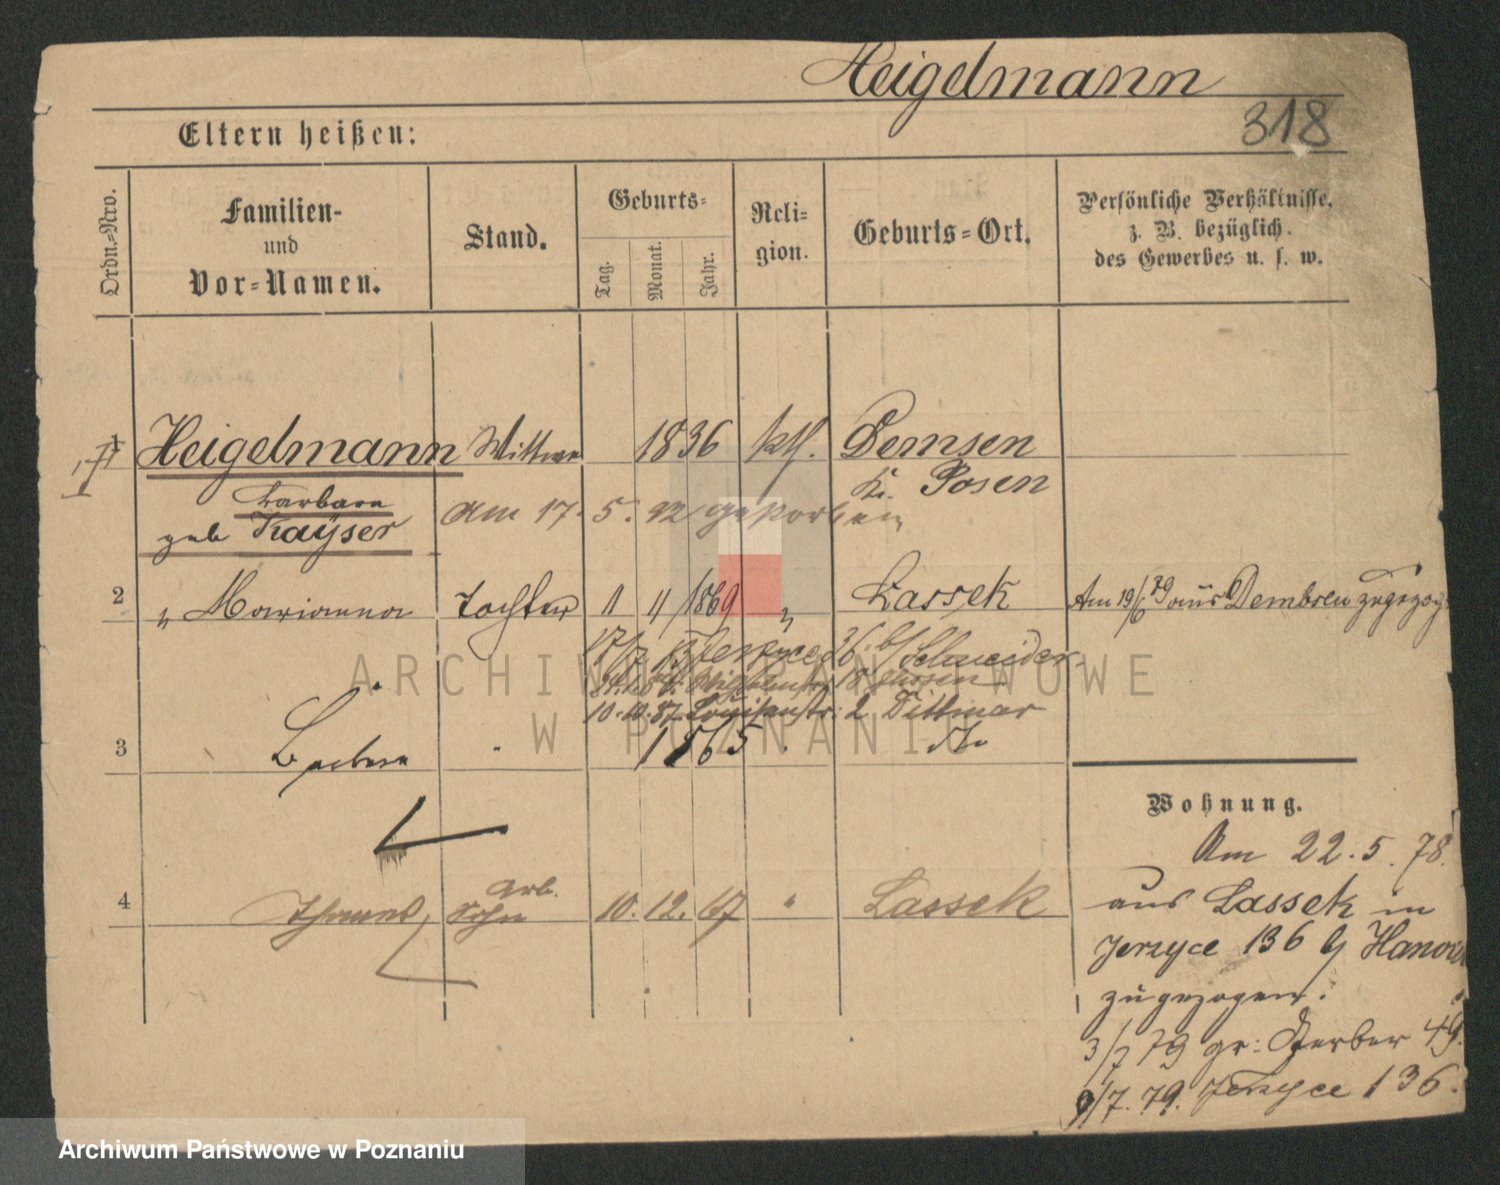 Heigelmann
318
Eltern heißen:
Ordn.=Nro.
Familien-
und
Vor=Namen.
Stand.
Geburts=
Tag.
Monat.
Jahr.
Reli=
gion.
Geburts=Ort.
Persönliche Verhältnisse,
z. B. bezüglich
des Gewerbes u. s. w.
1
Heigelmann Wittwe 1836 kth. Demsen
Kr. Posen
Barbara
geb Kaÿser
am 17. 5. 92 gestorben
2 " Marianna Tochter 11 4 1869 " Lassek Am 19/6 79 aus Dembsen zugezog
17/7 Jerzyce 36. b/ Schneider
10. 10. 87. Louisenstr: 2 Dittmar
3 Barbara " 1865 " do
Wohnung.
Am 22. 5. 78.
aus Lassek in
Jerzyce 136 b/ Hanow
zugezogen.
3/7 79 gr: Gerber 49.
9/7. 79. Jerzyce 136.
arb.
4 Thomas, Sohn 10. 12. 67 " Lassek
ARCHIWUM PAŃSTWOWE
W POZNANIU
Archiwum Państwowe w Poznaniu